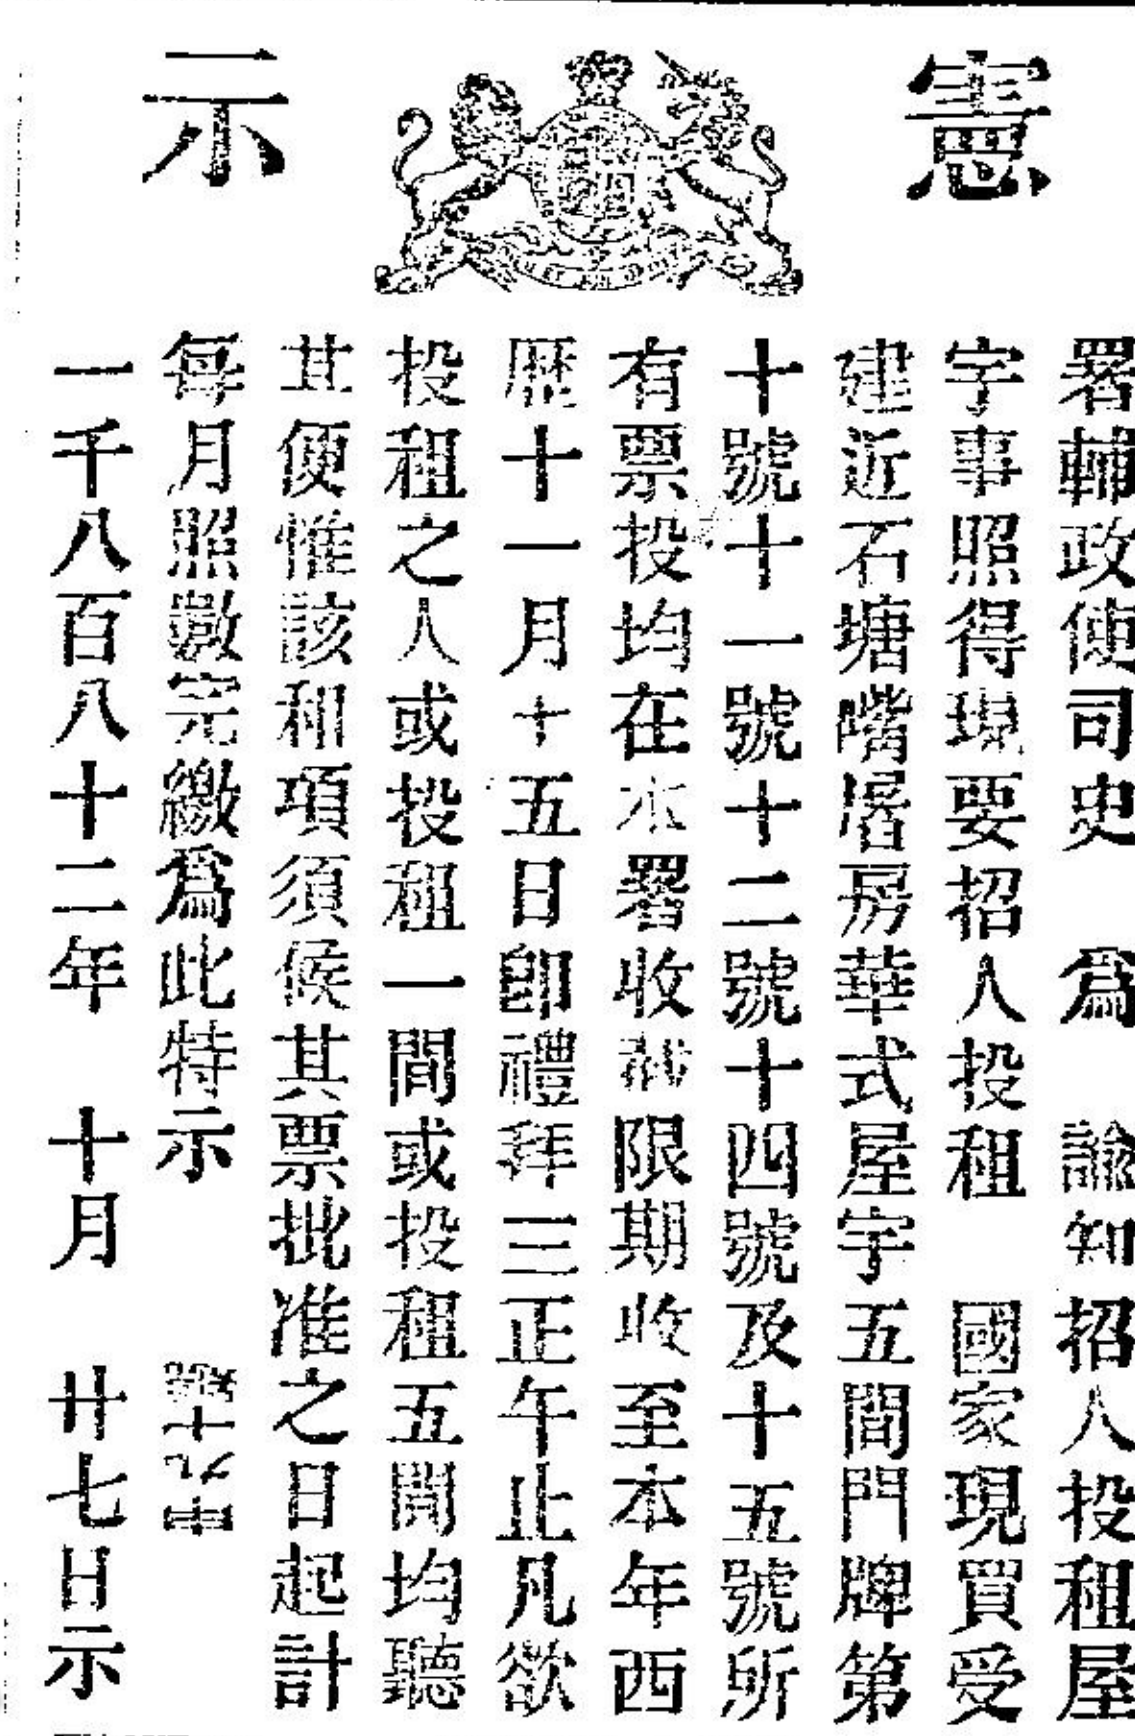 憲示
署輔政使司史 爲 諭知招人投租屋
宇事照得現要招人投租 國家現買受
建近石塘嘴層房華式屋宇五間門牌第
十號十一號十二號十四號及十五號所
有票投均在本署收截限期收至本年西
曆十一月十五日卽禮拜三正午止凡欲
投租之人或投租一間或投租五間均聽
其便惟該租項須候其票批准之日起計
每月照數完繳爲此特示
一千八百八十二年 十月 廿七日示